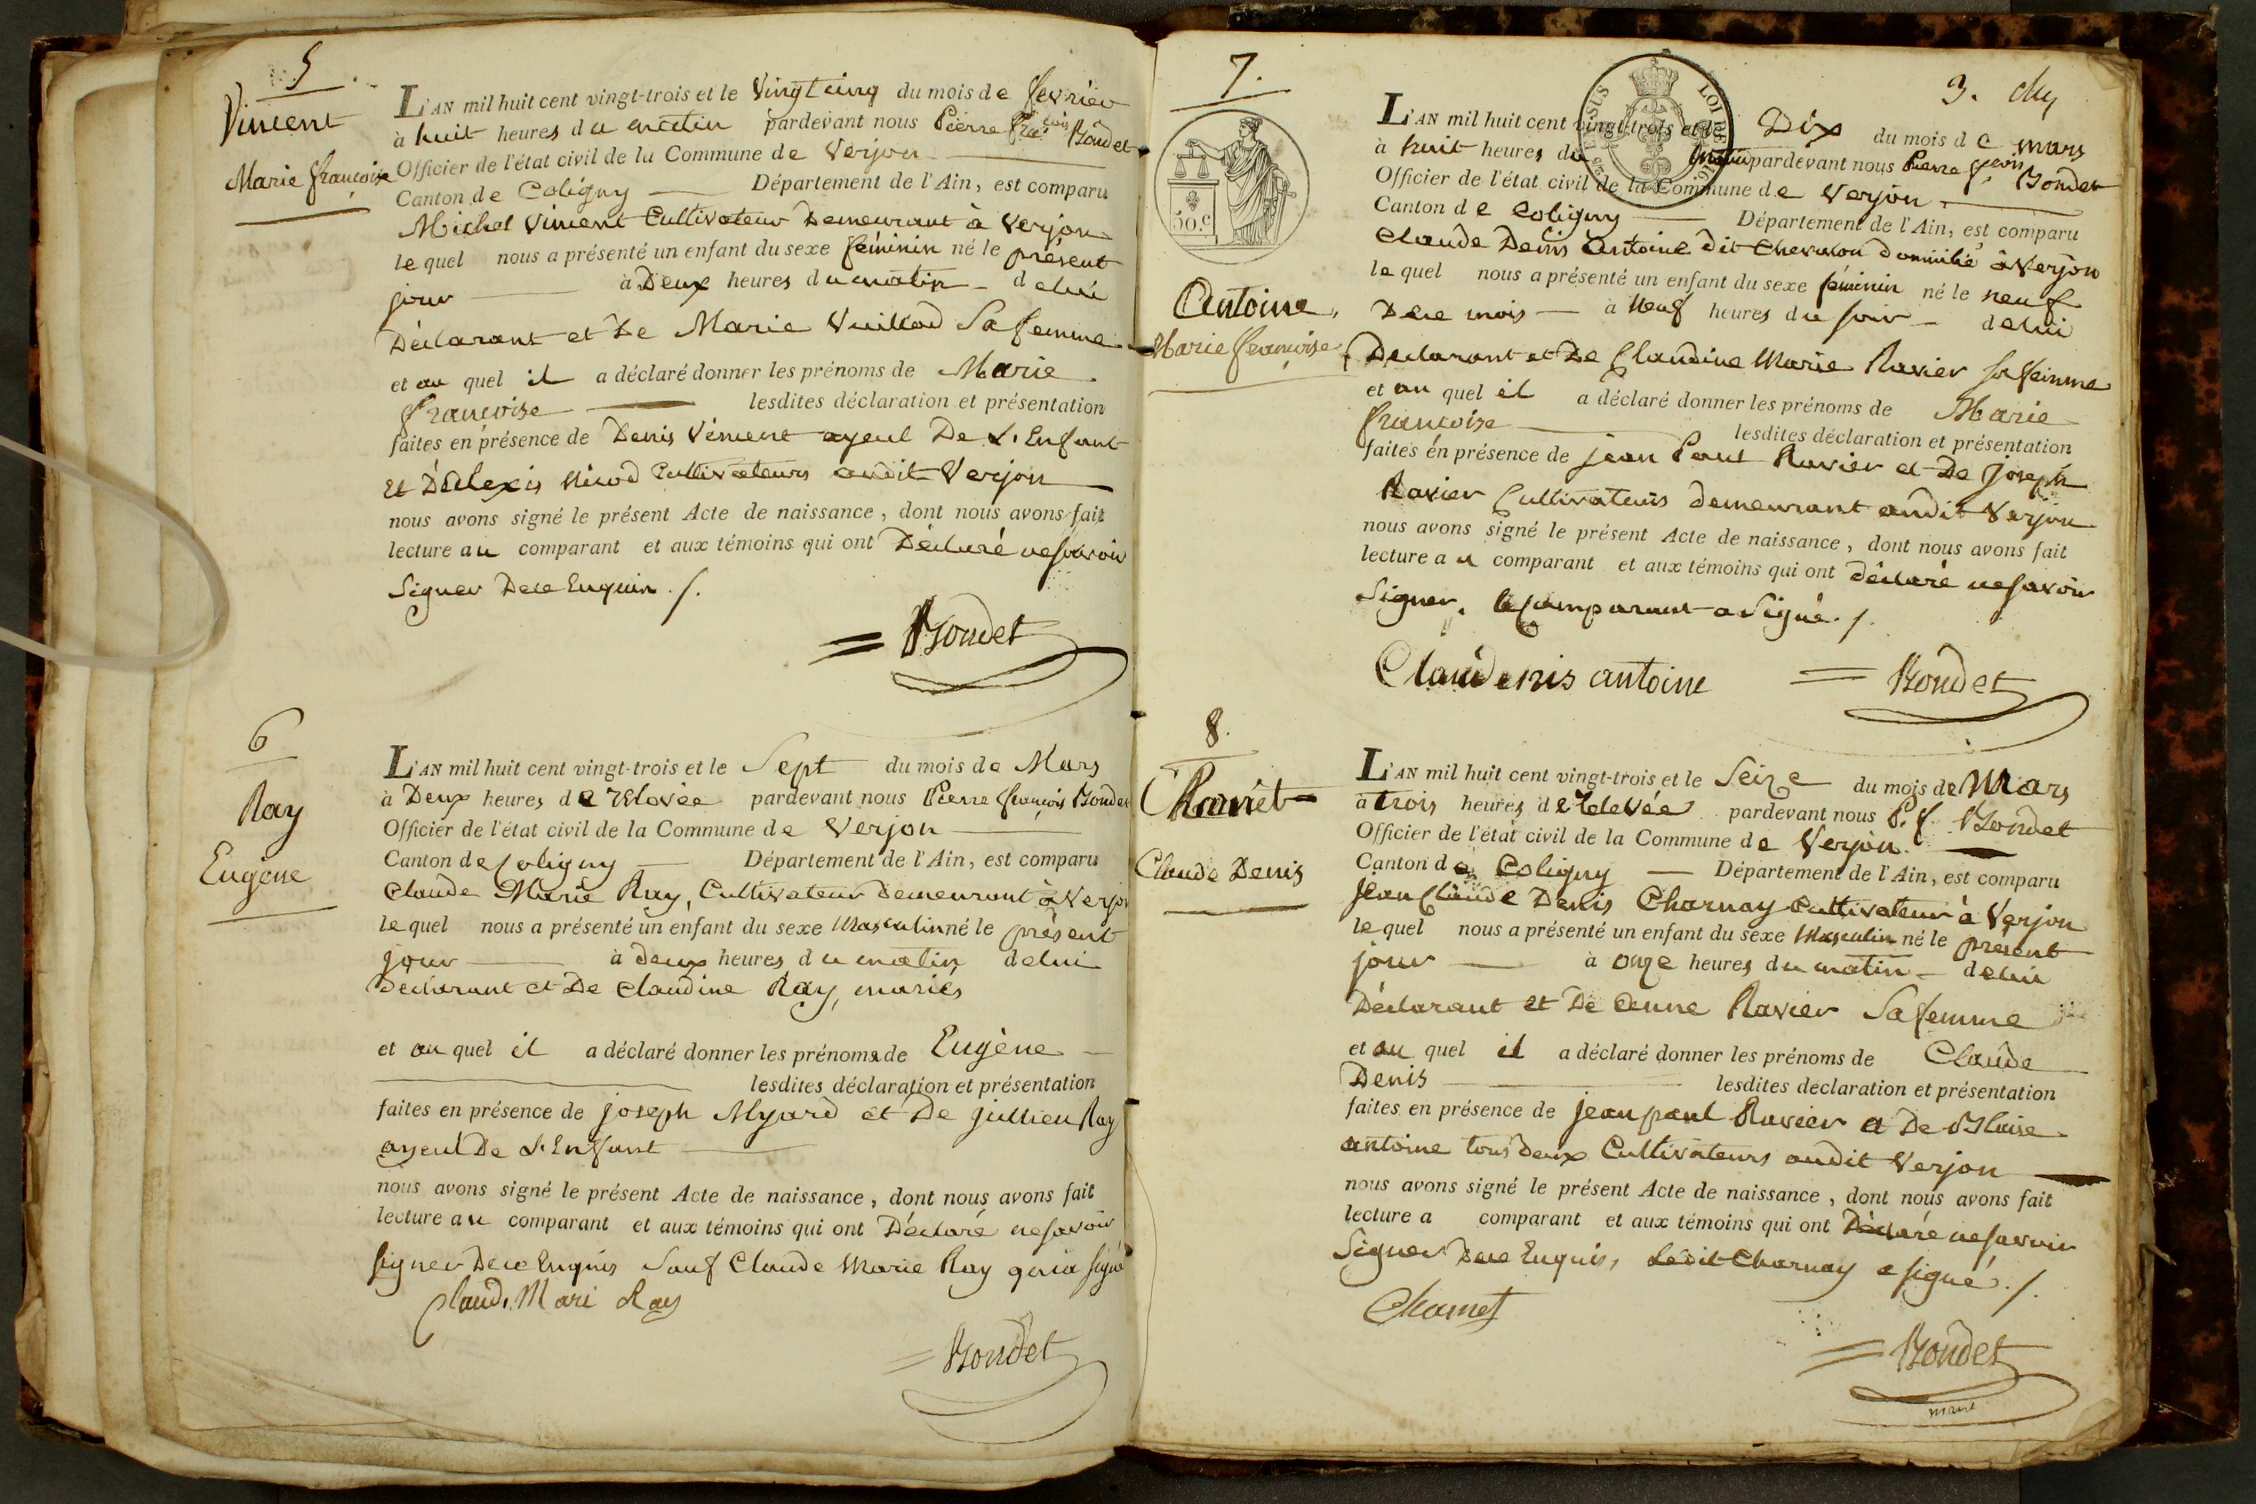 5
Vincent
Marie françoise
L'AN mil huit cent vingt-trois et le Vingt cinq du mois de fevrier
à huit heures du matin pardevant nous Pierre fra.çois Bondet
Officier de l'état civil de la Commune de Verjon
Canton de Coligny Département de l'Ain, est comparu
Michel Vincent Cultivateur Demeurant à Verjon
le quel nous a présenté un enfant du sexe féminin né le présent
jour à Deux heures du matin de lui
Déclarant et De Marie Vuillod Sa femme
et au quel il a déclaré donner les prénoms de Marie
françoise lesdites déclaration et présentation
faites en présence de Denis Vincent ayeul De L'Enfant
et D'alexis Nicod Cultivateurs audit Verjon
nous avons signé le présent Acte de naissance, dont nous avons fait
lecture au comparant et aux témoins qui ont Déclaré ne Savoir
Signer De ce Enquis ./.
Bondet
6
Ray
Eugene
L'AN mil huit cent vingt-trois et le Sept du mois de Mars
à Deux heures de relevée pardevant nous Pierre françois Bondet
Officier de l'état civil de la Commune de Verjon
Canton de Coligny Département de l'Ain, est comparu
Claude Marie Ray, Cultivateur Demeurant à Verjon
le quel nous a présenté un enfant du sexe Masculin né le présent
jour à deux heures du matin de lui
Déclarant et De Claudine Ray, mariés
et au quel il a déclaré donner les prénoms de Eugène
lesdites déclaration et présentation
faites en présence de joseph Myard et De jullien Ray
ayeul De L'Enfant
nous avons signé le présent Acte de naissance, dont nous avons fait
lecture au comparant et aux témoins qui ont Déclaré ne Savoir
signer De ce Enquis Sauf Claude Marie Ray qui a signé
Claud. Mari Ray
Bondet
7.
50.c
Antoine,
Marie françoise
3.
L'AN mil huit cent vingt-trois et le Dix du mois de mars
à huit heures du matin pardevant nous Pierre f.çois Bondet
Officier de l'état civil de la Commune de Verjon
Canton de Coligny Département de l'Ain, est comparu
Claude Denis Antoine dit Chevalon domicilié à Verjon
le quel nous a présenté un enfant du sexe féminin né le neuf
De ce mois à Neuf heures du soir de lui
Déclarant et De Claudine Marie Ravier sa femme
et au quel il a déclaré donner les prénoms de Marie
françoise lesdites déclaration et présentation
faites en présence de jean Paul Ravier et De Joseph
Ravier Cultivateurs demeurant audit Verjon
nous avons signé le présent Acte de naissance, dont nous avons fait
lecture au comparant et aux témoins qui ont déclaré ne savoir
Signer, le Comparant a Signé ./.
Claudenis antoine
Bondet
8.
Claude Denis
L'AN mil huit cent vingt-trois et le Seize du mois de Mars
à trois heures de relevée pardevant nous P. f. Bondet
Officier de l'état civil de la Commune de Verjon
Canton de Coligny Département de l'Ain, est comparu
Jean Claude Denis Charnay Cultivateur à Verjon
le quel nous a présenté un enfant du sexe Masculin né le présent
jour à onze heures du matin de lui
Déclarant et De Anne Ravier Sa femme
et au quel il a déclaré donner les prénoms de Claude
Denis lesdites declaration et présentation
faites en présence de jean paul Ravier et De Blaise
antoine tous deux Cultivateurs audit Verjon
nous avons signé le présent Acte de naissance, dont nous avons fait
lecture a comparant et aux témoins qui ont Déclaré ne savoir
Signer De ce Enquis, Ledit Charnay a signé ./.
Bondet